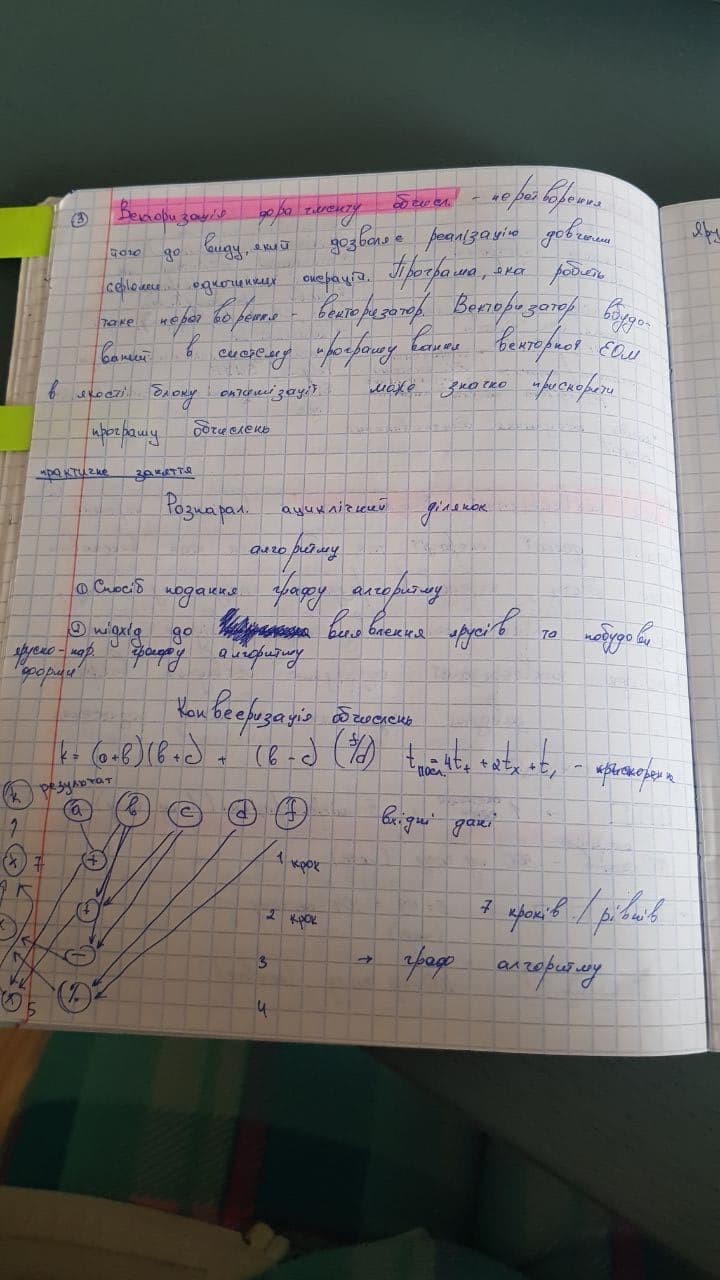 ③ Векторизація фрагменту обчисл. - перетворення
того до виду, який дозволяє реалізацію довгими
серіями одночинних операцій. Программа, яка робить
таке перетворення - векторизатор. Векторизатор вбудо-
ваний в систему програмування векторної ЕОМ
в якості блоку оптимізації може значно прискорити
програму обчислень
практичне заняття
Розпарал. ациклічний ділянок
алгоритму
① Спосіб подання графу алгоритму
② підхід до виявлення ярусів та побудови
ярусно-пар. графу алгоритму
форми
Конвеєризація обчислень
k = (a+b)(b+c) + (b-c)(f/d) t посл. = 4t+ + 2tx + t/ -
k результат
a b c d f вхідні дані
+ 1 крок
+ 2 крок 7 кроків / рівнів
- 3 → граф алгоритму
/ 4
x 5
x
+ 7
Яру